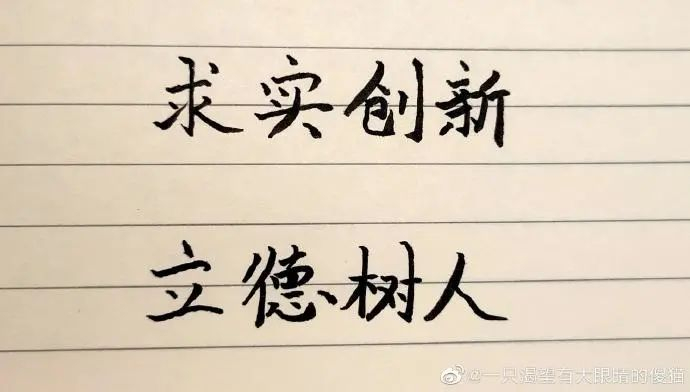 求实创新
立德树人
@一只渴望有大眼睛的傻猫